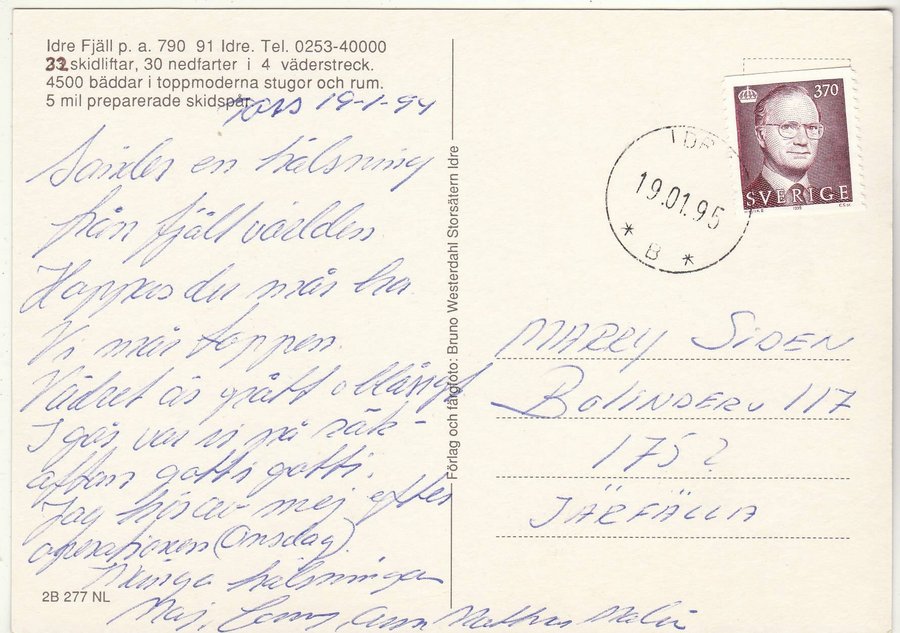 Idre Fjäll p. a. 790 91 Idre. Tel. 0253-40000
32 skidliftar, 30 nedfarter i 4 väderstreck.
4500 bäddar i toppmoderna stugor och rum.
5 mil preparerade skidspår.
Tors 19-1-94
Sänder en hälsning
från fjällvärlden
Hoppas du mår bra.
Vi mår toppen.
Vädret är grått o blåsigt
I går var vi på räk-
afton gott i gott i.
Jag hör av mej efter
operationen (Onsdag).
Många hälsningar
Maj, Ann Mathias Malin
2B 277 NL
Förlag och färgfoto: Bruno Westerdahl Storsätern Idre
370
SVERIGE
IDRE
19.01.95
* B *
MARRY SIDEN
BOLINDERV 117
175 ?
JÄRFÄLLA